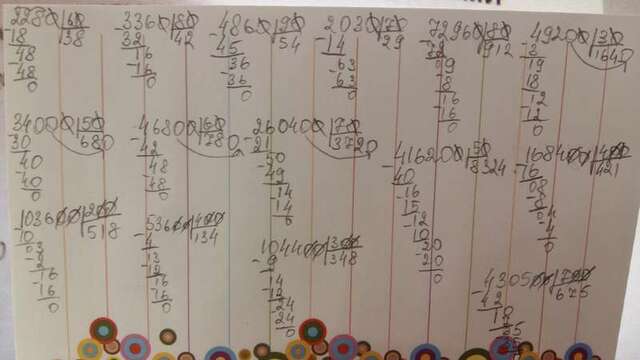 2280|60
-18 38
48
-48
0
3360|80
-32 42
16
-16
0
4860|90
-45 54
36
-36
0
2030|70
-14 29
63
-63
0
72960|80
-72 912
9
-8
16
-16
0
49200|30
-3 1640
19
-18
12
-12
0
34000|50
-30 680
40
-40
0
46800|60
-42 780
48
-48
0
260400|70
-21 3720
50
-49
14
-14
0
416200|50
-40 8324
16
-15
12
-10
20
-20
0
168400|400
-16 421
08
-8
04
-4
0
103600|200
-10 518
03
-2
16
-16
0
53600|400
-4 134
13
-12
16
-16
0
104400|300
-9 348
14
-12
24
-24
0
430500|700
-42
10